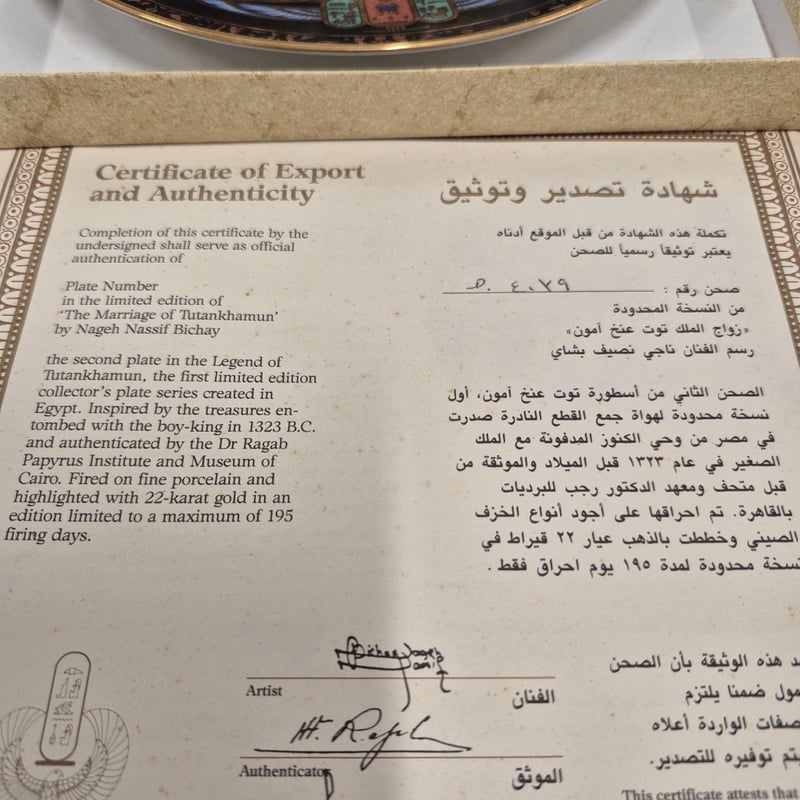 Certificate of Export
and Authenticity
Completion of this certificate by the
undersigned shall serve as official
authentication of
Plate Number
in the limited edition of
'The Marriage of Tutankhamun'
by Nageh Nassif Bichay
the second plate in the Legend of
Tutankhamun, the first limited edition
collector's plate series created in
Egypt. Inspired by the treasures en-
tombed with the boy-king in 1323 B.C.
and authenticated by the Dr Ragab
Papyrus Institute and Museum of
Cairo. Fired on fine porcelain and
highlighted with 22-karat gold in an
edition limited to a maximum of 195
firing days.
شهادة تصدير وتوثيق
تكملة هذه الشهادة من قبل الموقع أدناه
يعتبر توثيقاً رسمياً للصحن
صحن رقم :
من النسخة المحدودة
«زواج الملك توت عنخ أمون»
رسم الفنان ناجي نصيف بشاي
الصحن الثاني من أسطورة توت عنخ أمون، أول
نسخة محدودة لهواة جمع القطع النادرة صدرت
في مصر من وحي الكنوز المدفونة مع الملك
الصغير في عام ١٣٢٣ قبل الميلاد والموثقة من
قبل متحف ومعهد الدكتور رجب للبرديات
بالقاهرة. تم احراقها على أجود أنواع الخزف
الصيني وخططت بالذهب عيار ٢٢ قيراط في
نسخة محدودة لمدة ١٩٥ يوم احراق فقط.
Artist
الفنان
Authenticator
الموثق
هذه الوثيقة بأن الصحن
ضمنا يلتزم
الواردة أعلاه
توفيره للتصدير.
This certificate attests that